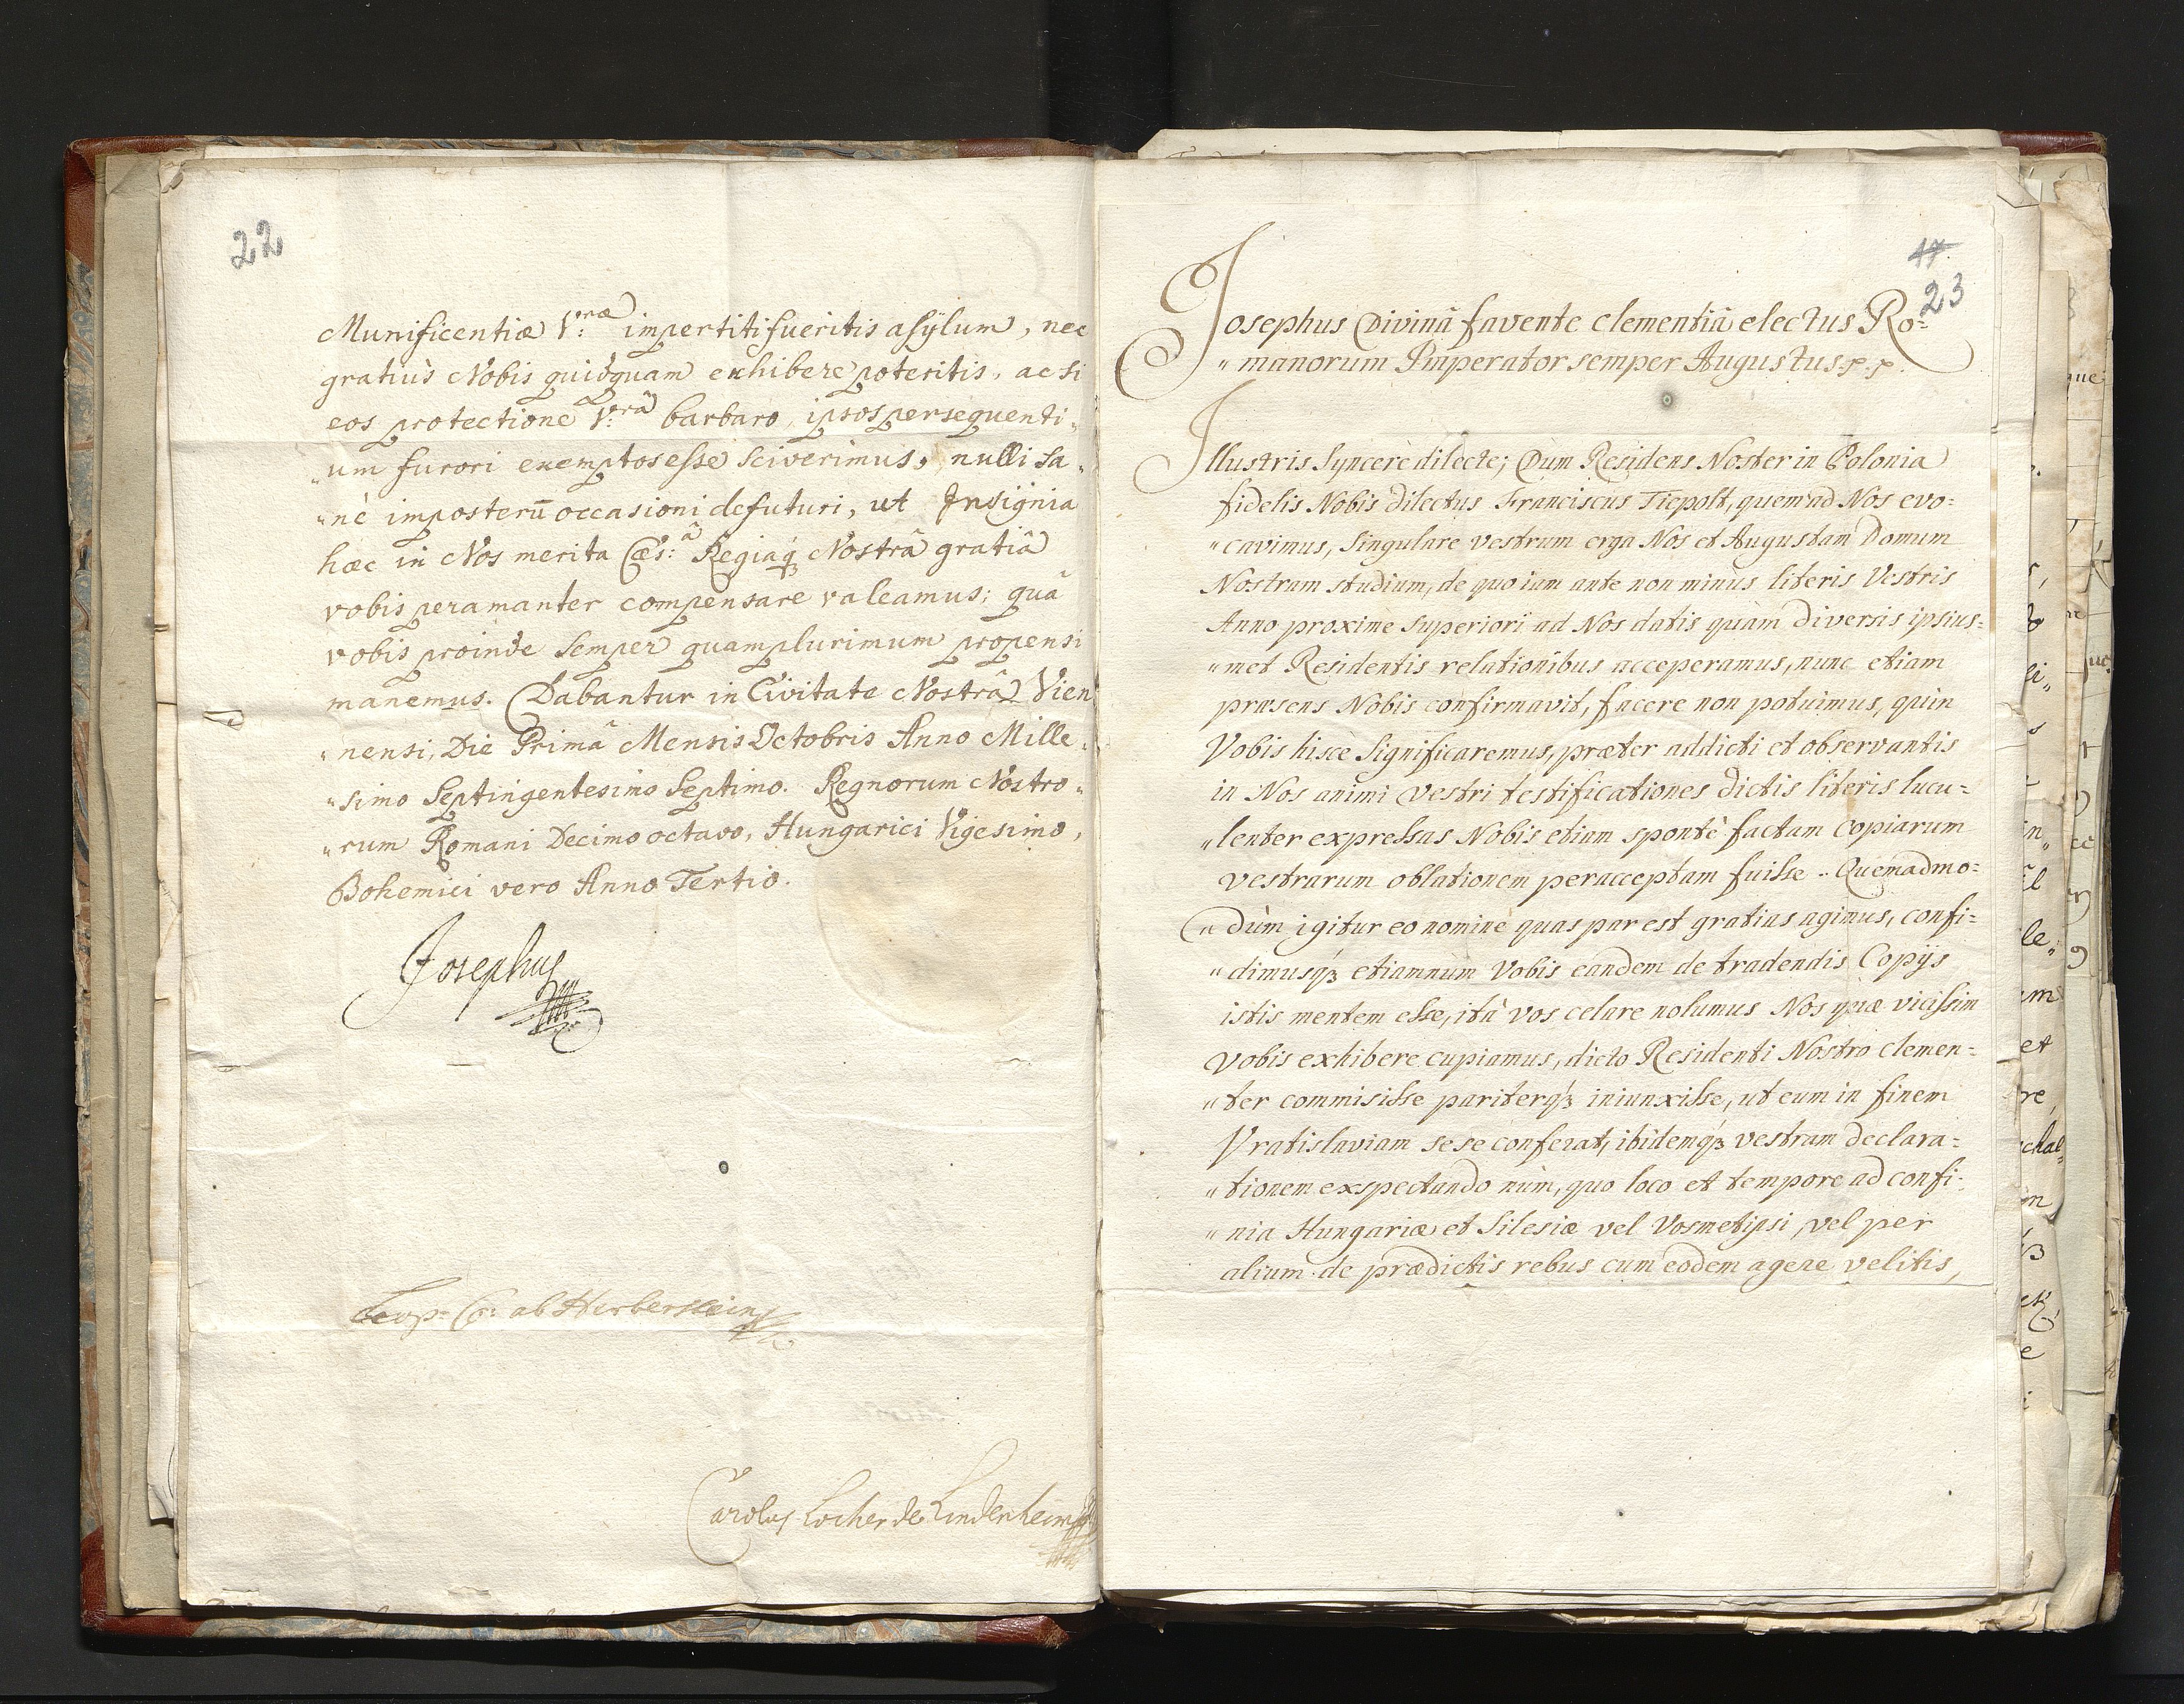 22
Munificentiæ V:ræ impertiti fueritis asÿlum, nec
gratiùs Nobis quidquam exhibere poteritis, ac si
eos protectione V:râ barbaro, ipsos persequenti„
„um furori exemptos esse sciverimus, nulli sa„
„nè imposterū occasioni defuturi, ut Insignia
hæc in Nos merita Cæs:â Regiaq́ꝫ Nostrâ gratiâ
vobis peramanter compensare valeamus; quâ
vobis proinde semper quamplurimum propensi
manemus. Dabantur in Civitate Nostrâ Vien
„nensi, Die Primâ Mensis Octobris Anno Mille„
„simo Septingentesimo Septimo. Regnorum Nostro„
„rum Romani Decimo octavo, Hungarici Vigesimo,
Bohemici vero Anno Tertio.
Josephus
Leop: C: ab Herberstein
Carolus Locher de Lindenheim
17.
23
Josephus Divinâ favente clementiâ electus Ro=
„manorum Imperator semper Augustus.
Illustris Syncerè dilecte; Dum Residens Noster in Polonia
fidelis Nobis dilectus Franciscus Tiepolt, quem ad Nos evo=
„cavimus, Singulare vestrum erga Nos et Augustam Domum
Nostram studium, de quo iam ante non minus literis Vestris
Anno proxime Superiori ad Nos datis quàm diversis ipsius=
„met Residentis relationibus acceperamus, nunc etiam
præsens Nobis confirmavit, facere non potuimus, quin
Vobis hisce Significaremus, præter addicti et observantis
in Nos animi Vestri testificationes dictis literis lucu=
„lenter expressas Nobis etiam spontè factam Copiarum
vestrarum oblationem peracceptam fuisse. Quemadmo=
„dùm igitur eo nomine quas par est gratias agimus, confi=
„dimusq́ꝫ etiamnum Vobis eandem de tradendis Copijs
istis mentem esse, ità vos celare nolumus Nos quæ vicissim
Vobis exhibere cupiamus, dicto Residenti Nostro clemen=
„ter commisisse pariterq́ꝫ iniunxisse, ut eum in finem
Vratislaviam sese conferat, ibidemq́ꝫ vestram declara=
„tionem exspectando nùm, quo loco et tempore ad confi=
„nia Hungariæ et Silesiæ vel Vosmetipsi, vel per
alium de prædictis rebus cum eodem agere velitis,